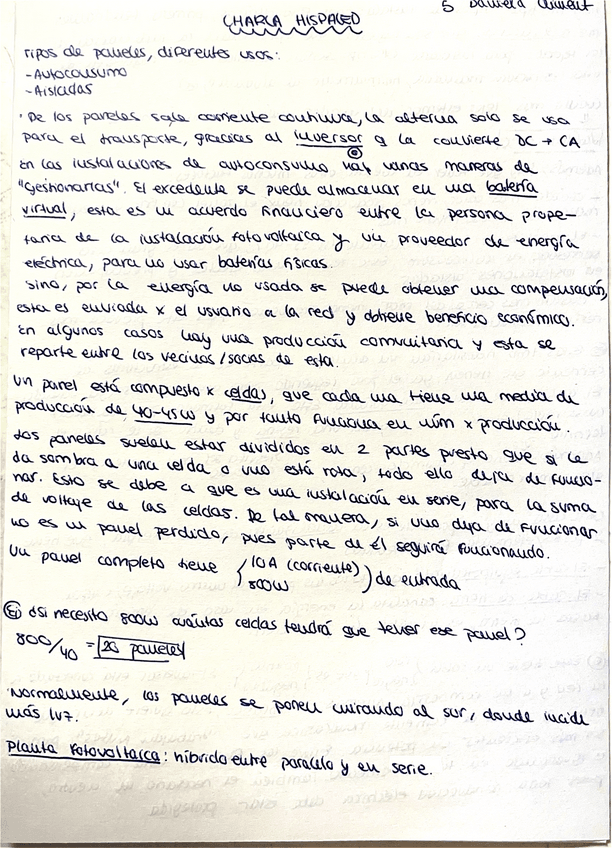 5 Daniela Climent
CHARLA HISPALED
Tipos de paneles, diferentes usos:
-Autoconsumo
-Aisladas
· De los paneles sale corriente continua, la alterna solo se usa
para el transporte, gracias al inversor q la convierte DC → CA
En las instalaciones de autoconsumo hay varias maneras de
"gestionarlas". El excedente se puede almacenar en una batería
virtual, esta es un acuerdo financiero entre la persona prope-
taria de la instalación fotovoltaica y un proveedor de energía
eléctrica, para no usar baterías físicas.
Sino, por la energía no usada se puede obtener una compensación,
esta es enviada x el usuario a la red y obtiene beneficio económico.
En algunos casos hay una producción comunitaria y esta se
reparte entre los vecinos/socios de esta.
Un panel está compuesto x celdas, que cada una tiene una media de
producción de 40-45W y por tanto funciona en núm x producción.
Los paneles suelen estar divididos en 2 partes puesto que si le
da sombra a una celda o una está rota, todo ello deja de funcio-
nar. Esto se debe a que es una instalación en serie, para la suma
de voltaje de las celdas. De tal manera, si uno deja de funcionar
no es un panel perdido, pues parte de él seguirá funcionando.
Un panel completo tiene (10A (corriente)
800W) de entrada
Ej ¿Si necesito 800W cuántas celdas tendrá que tener ese panel?
800/40 = 20 paneles
·Normalmente, los paneles se ponen mirando al sur, donde incide
más luz.
Planta fotovoltaica: híbrido entre paralelo y en serie.